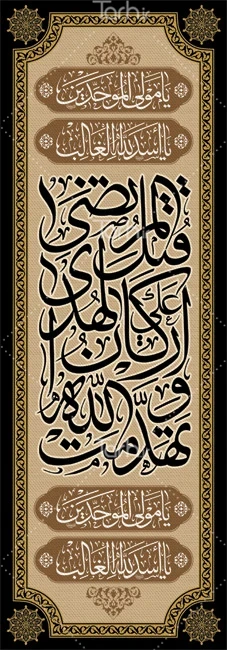 یا مولی الموحدین
یا اسد الله الغالب
تهدمت والله ارکان الهدی
قتل علی المرتضی
یا مولی الموحدین
یا اسد الله الغالب